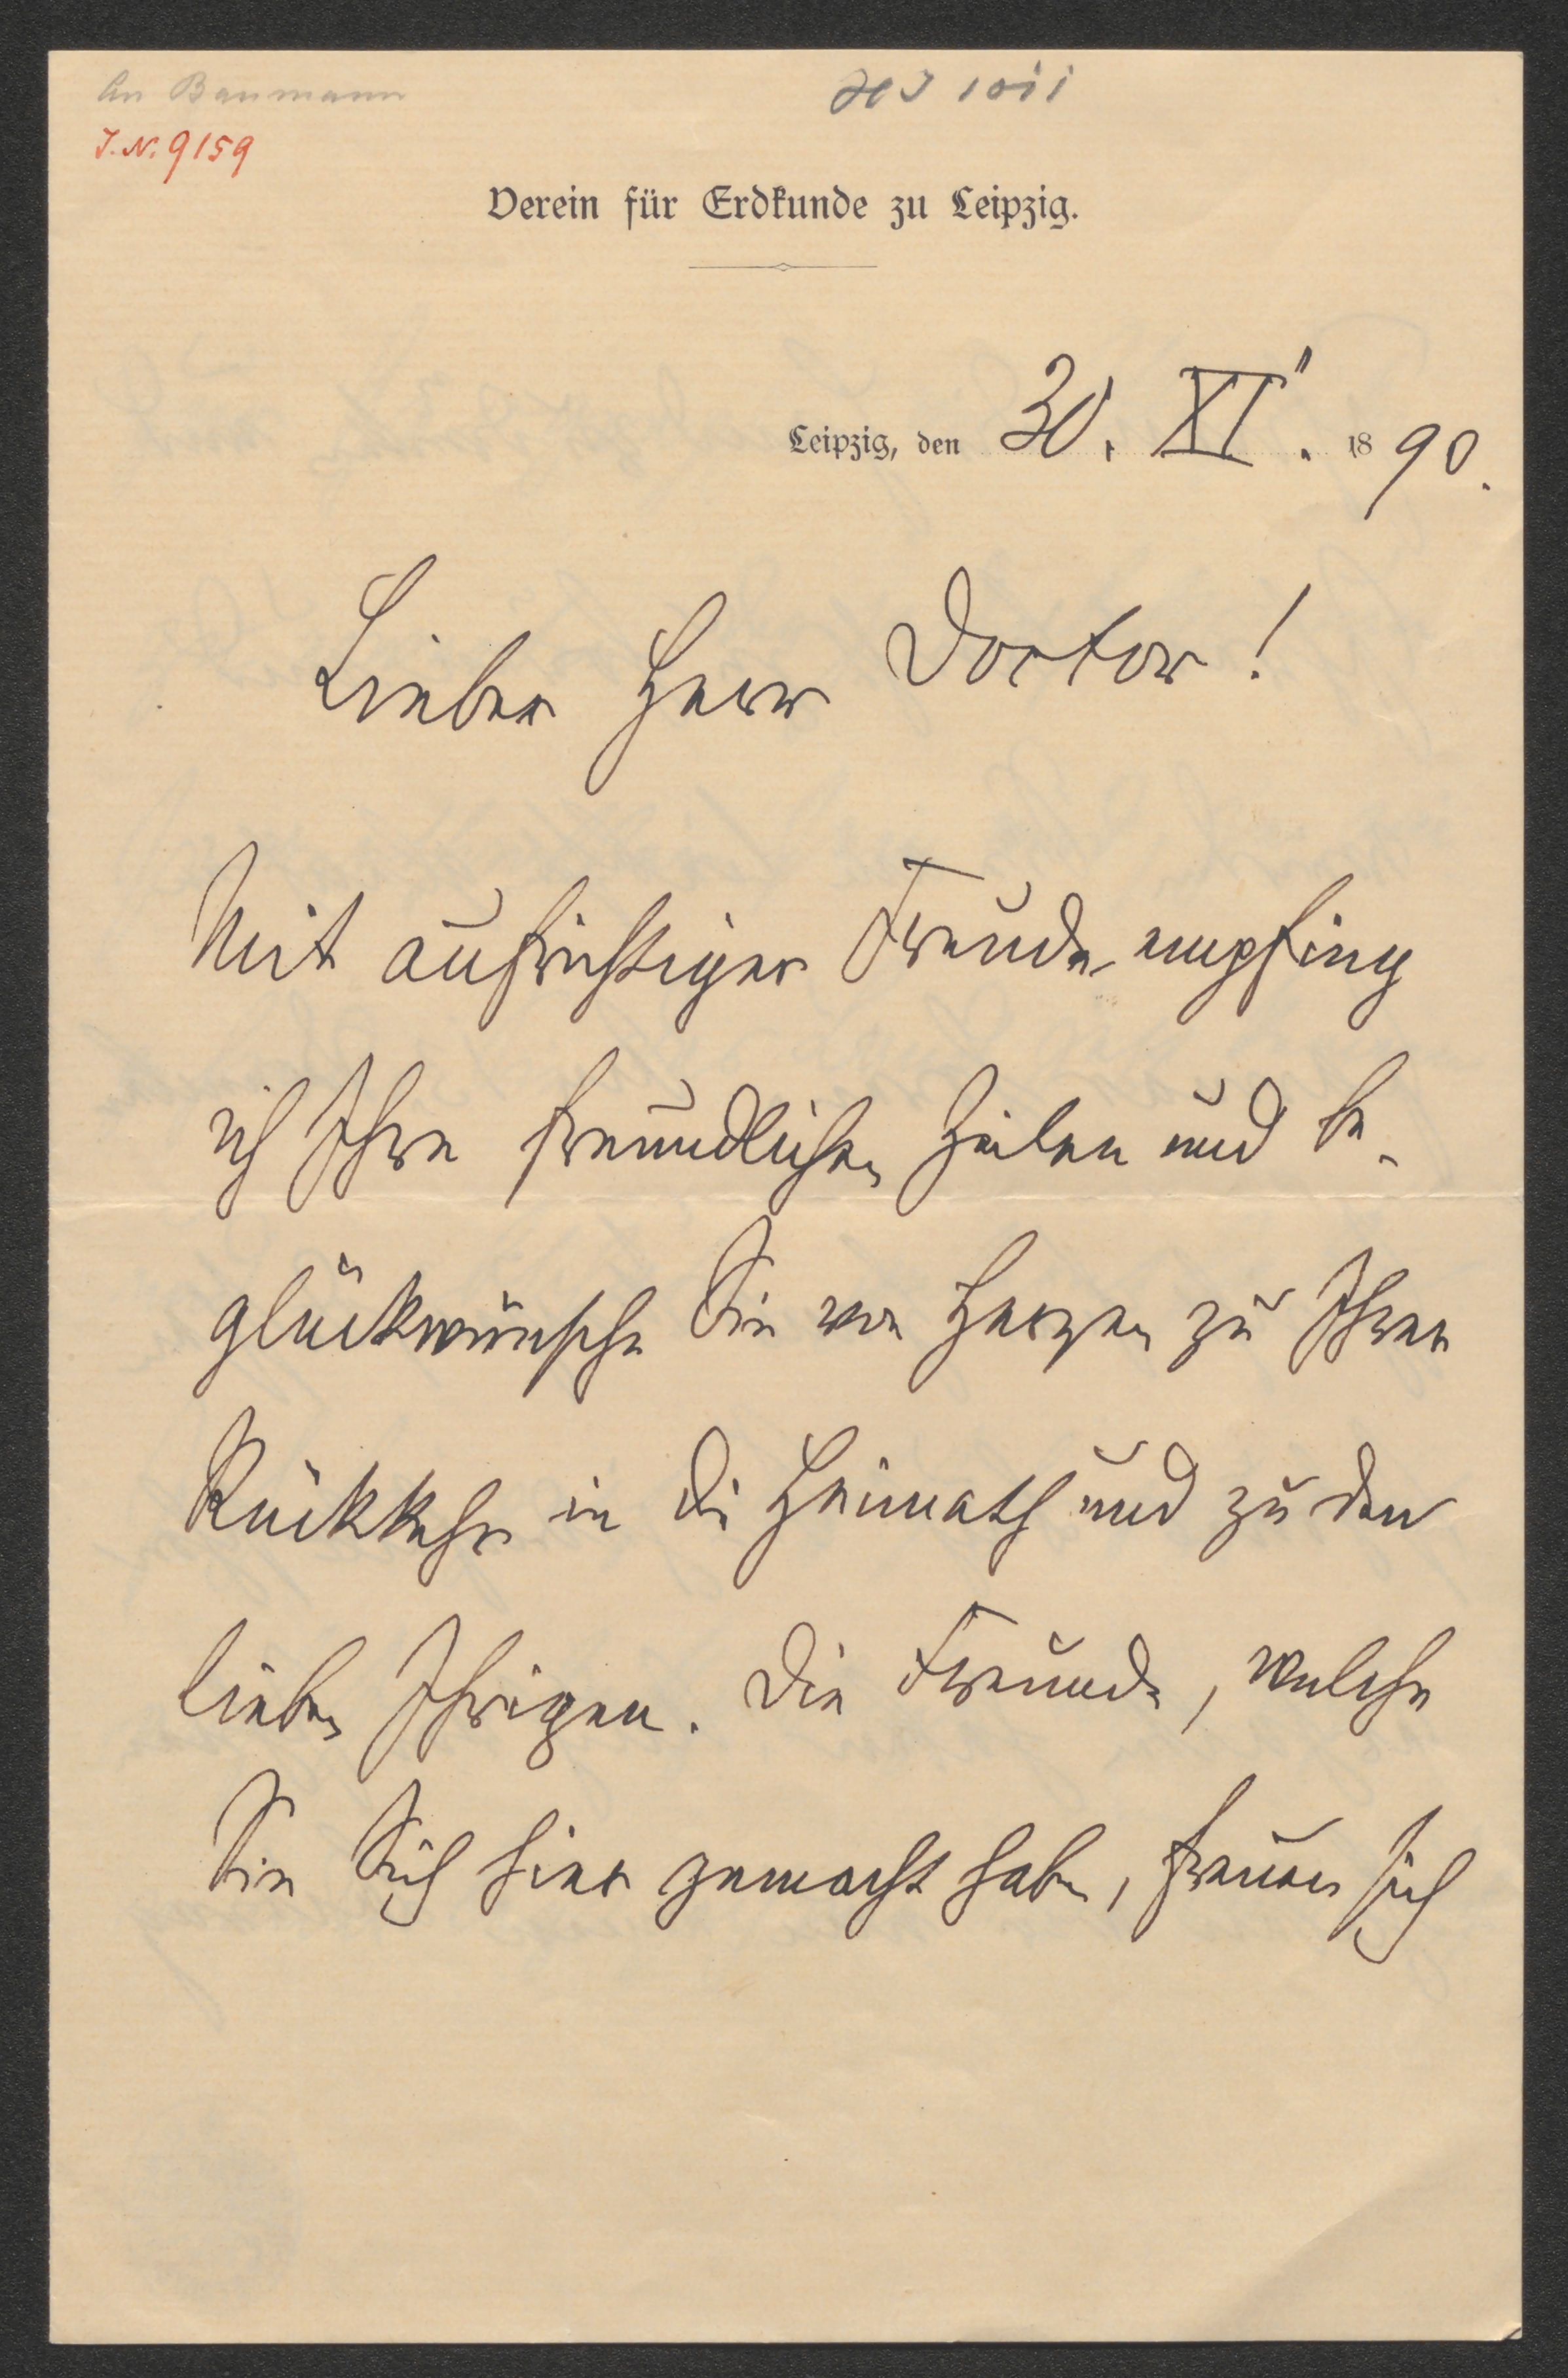 An Baumann
J.N. 9159
Verein für Erdkunde zu Leipzig.
Leipzig, den 30. XI. 1890.
Lieber Herr Doctor!
Mit aufrichtiger Freude empfing
ich Ihre freundlichen Zeilen und be-
glückwünsche Sie von Herzen zu Ihrer
Rückkehr in die Heimath und zu den
lieben Ihrigen. Die Freunde, welche
Sie Sich hier gemacht haben, freuen sich